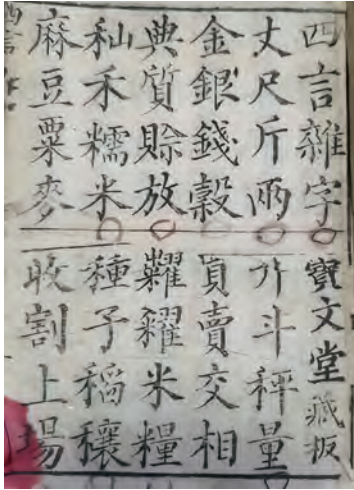 四言雜字 寶文堂藏板
丈尺斤兩 升斗秤量
金銀錢穀 買賣交相
典質賒放 糶糴米糧
秈禾糯米 種子稻穰
麻豆粟麥 收割上場